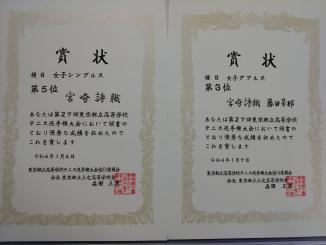 賞状
種目 女子シングルス
第5位
宮崎詩織
あなたは第27回東京都立高等学校
テニス選手権大会において頭書の
とおり優秀な成績を収めたので
これを賞します
令和6年1月6日
東京都立高等学校テニス選手権大会実行委員会
会長 東京都立三宅高等学校長
森田 正男
賞状
種目 女子ダブルス
第3位
宮崎詩織 藤田菜那
あなたは第27回東京都立高等学校
テニス選手権大会において頭書の
とおり優秀な成績を収めたので
これを賞します
令和6年1月7日
東京都立高等学校テニス選手権大会実行委員会
会長 東京都立三宅高等学校長
森田 正男